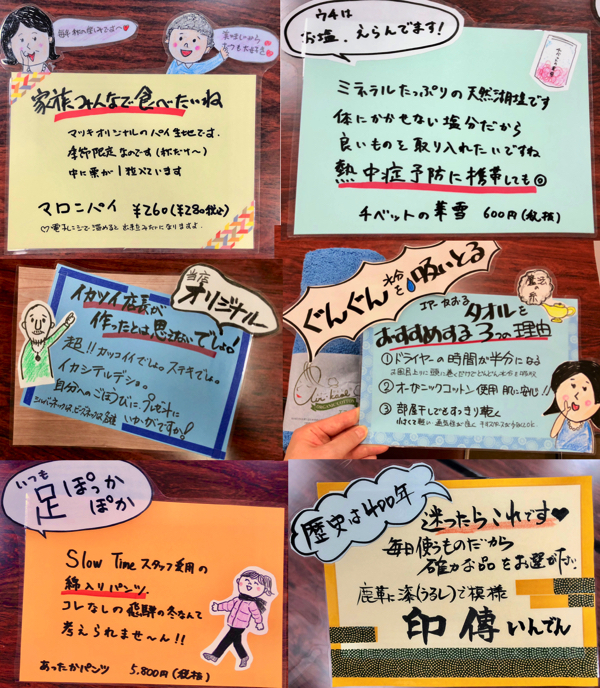 毎年秋の楽しみです〜
美味しいから
おうちも大好き
家族みんなで食べたいね
マツキオリジナルのパイ生地です。
季節限定なのです(秋だけ〜)
中に栗が1粒入っています
マロンパイ ¥260(¥280税込)
♡電子レンジで温めると出来立てみたいになりますよ。
ウチは
お塩、えらんでます!
ミネラルたっぷりの天然湖塩です
体にかかせない塩分だから
良いものを取り入れたいですね
熱中症予防に携帯しても◎
チベットの華雪 600円(税抜)
当店
オリジナル
イカツイ店長が
作ったとは思えないでしょ!
超!!カッコイイでしょ。ステキでしょ。
イカシテルデショ。
自分へのごほうびに。プレゼントに
いかがですか!
ぐんぐん水分を吸いとる
魔法の糸
エアーかおる
タオルを
おすすめする3つの理由
①ドライヤーの時間が半分になる
②オーガニックコットン使用 肌に安心!!
③部屋干しでもすっきり乾く
いつも
足ぽっか
ぽか
Slow Time スタッフ愛用の
綿入りパンツ。
コレなしの飛騨の冬なんて
考えられませ〜ん!!
あったかパンツ 5,800円(税抜)
歴史は400年
迷ったらこれです♥
毎日使うものだから
確かな品をお選び下さい
鹿革に漆(うるし)で模様
印傳いんでん